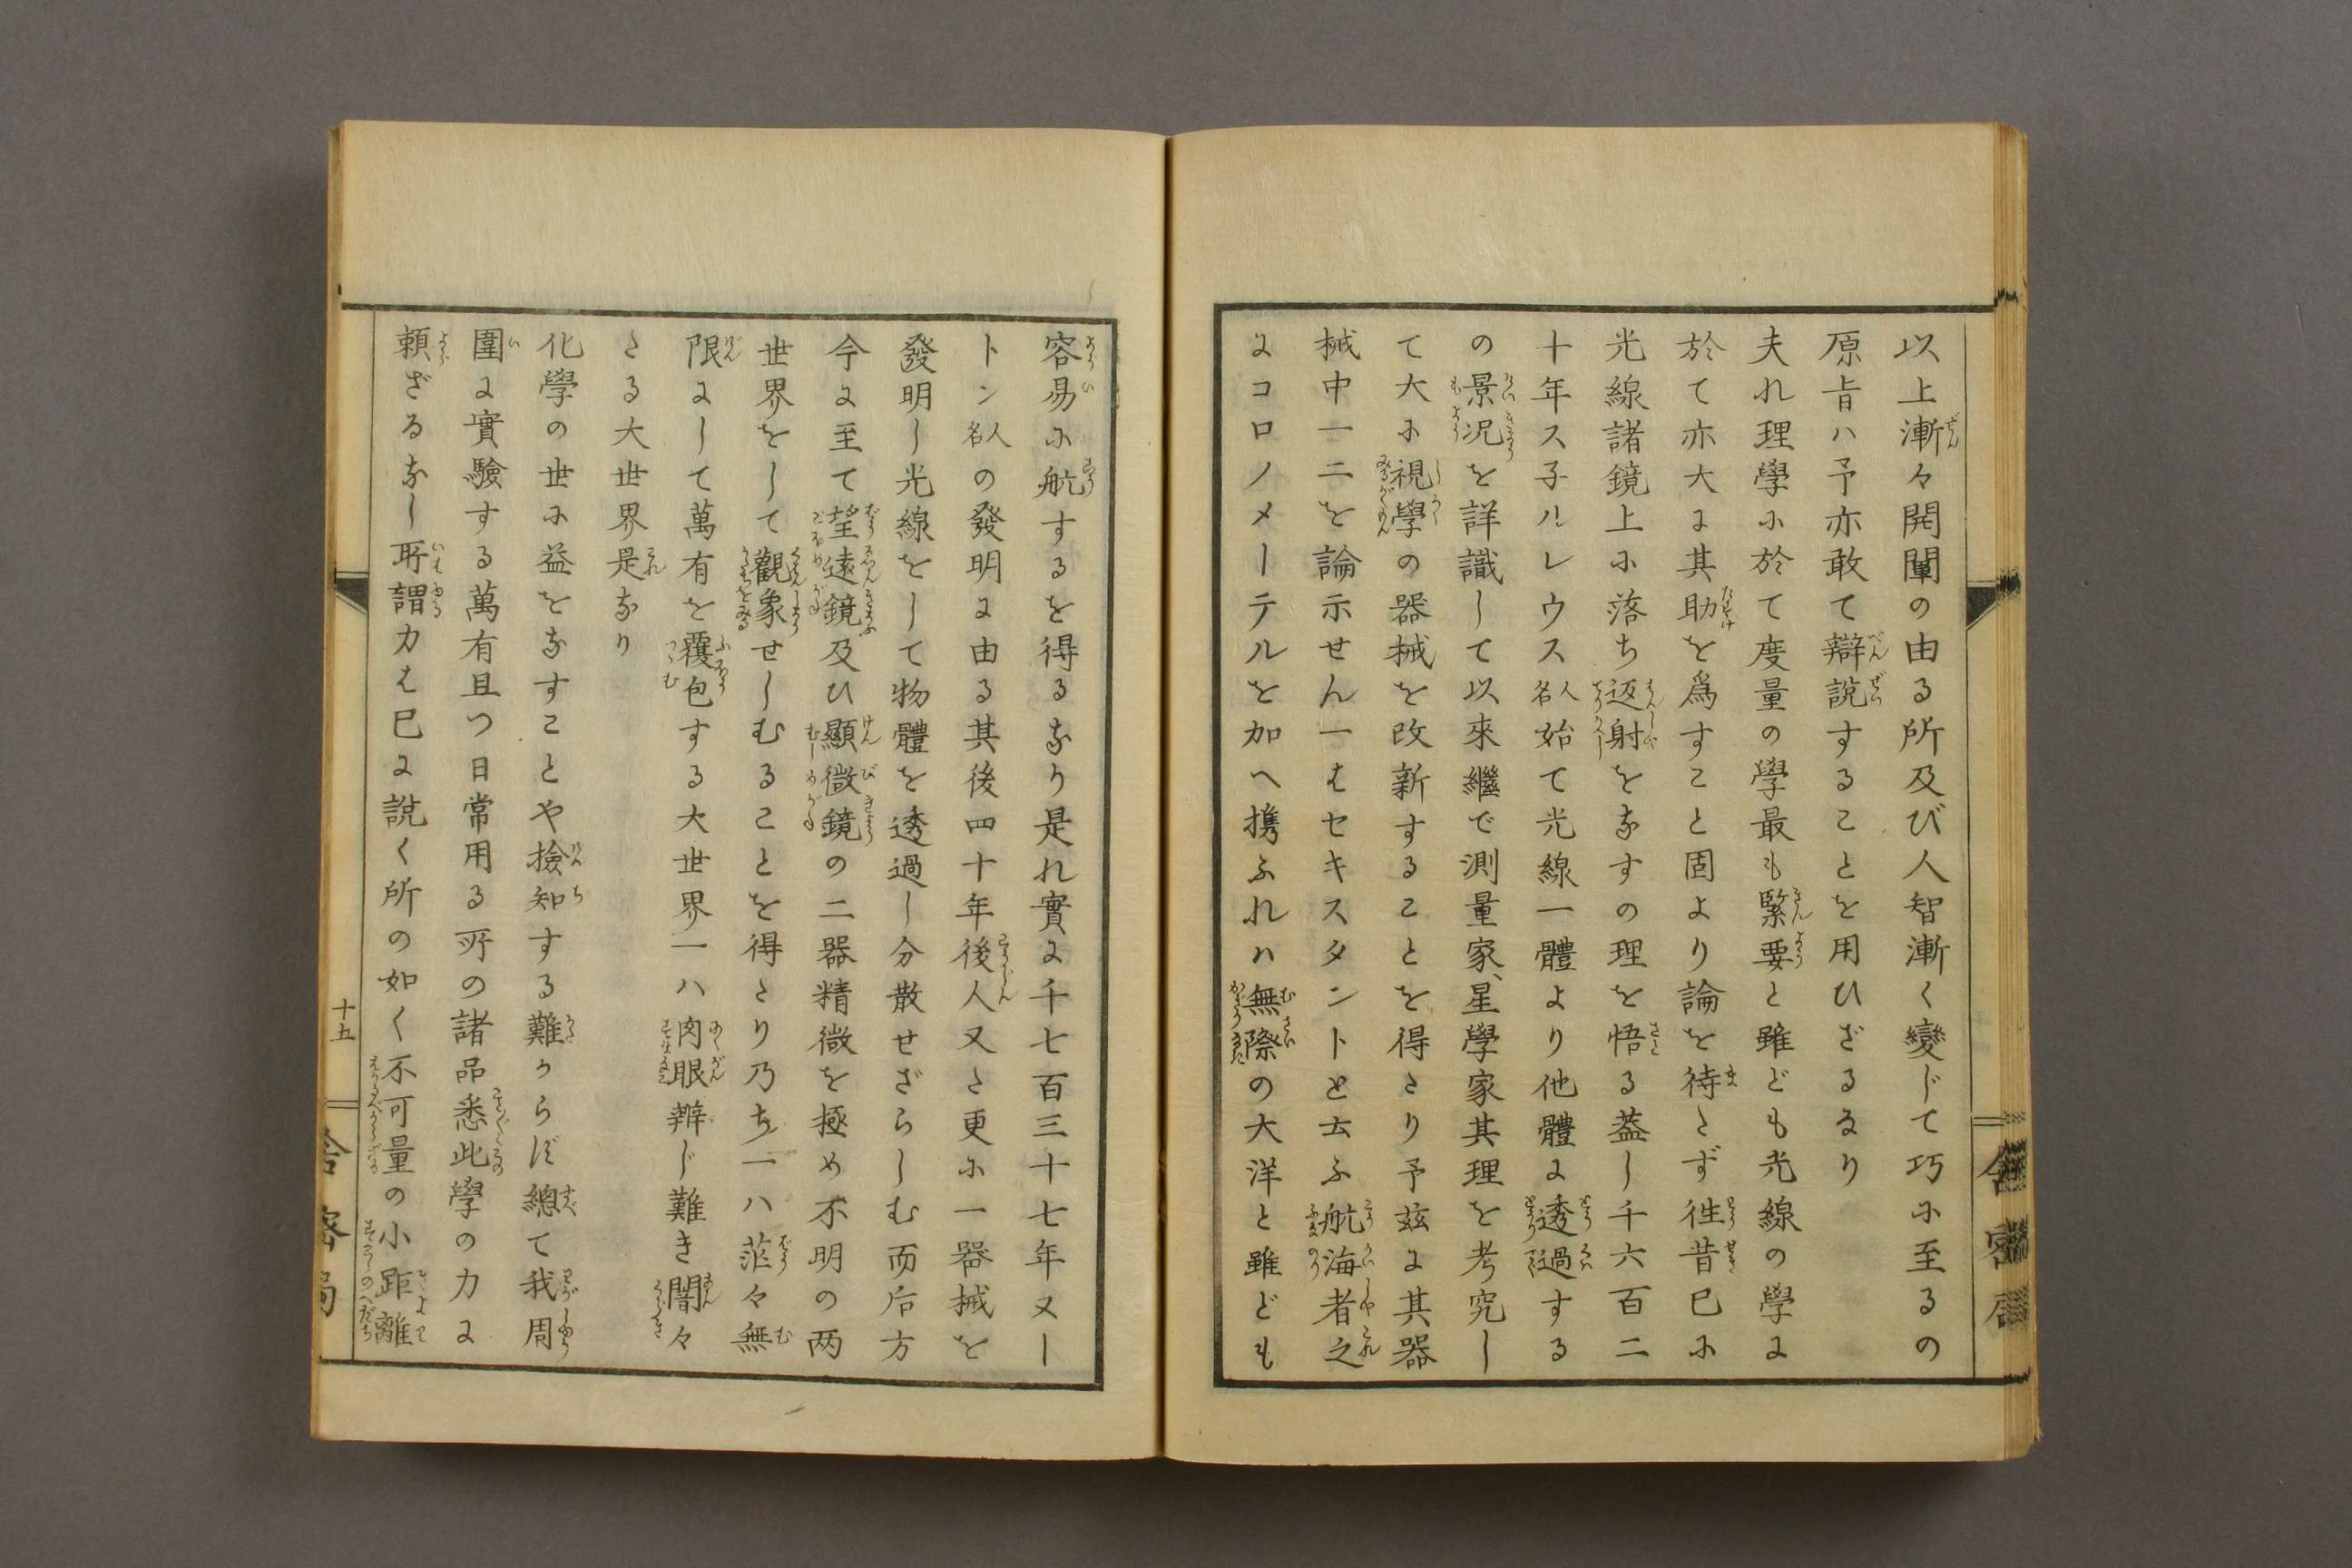 以上漸々開闡の由る所及び人智漸く變じて巧に至るの
原旨ハ予亦敢て辯說することを用ひざるなり
夫れ理學に於て度量の學最も緊要と雖ども光線の學に
於て亦大に其助を爲すこと固より論を待たず徃昔已に
光線諸鏡上に落ち返射をなすの理を悟る葢し千六百二
十年スネルレウス人名始て光線一體より他體に透過する
の景况を詳識して以來繼で測量家、星學家其理を考究し
て大に視學の器械を改新することを得たり予玆に其器
械中一二を論示せん一はセキスタントと云ふ航海者之
にコロノメーテルを加へ携ふれハ無際の大洋と雖ども
容易に航するを得るなり是れ實に千七百三十七年ヌー
トン人名の發明に由る其後四十年後人又た更に一器械を
發明し光線をして物體を透過し分散せざらしむ而后方
今に至て望遠鏡及ひ顯微鏡の二器精微を極め不明の两
世界をして觀象せしむることを得たり乃ち一ハ茫々無
限にして萬有を覆包する大世界一ハ肉眼辨じ難き闇々
たる大世界是なり
化學の世に益をなすことや撿知する難からず總て我周
圍に實驗する萬有且つ日常用る所の諸品悉此學の力に
頼ざるなし所謂力は已に說く所の如く不可量の小距離
十五
舎密局